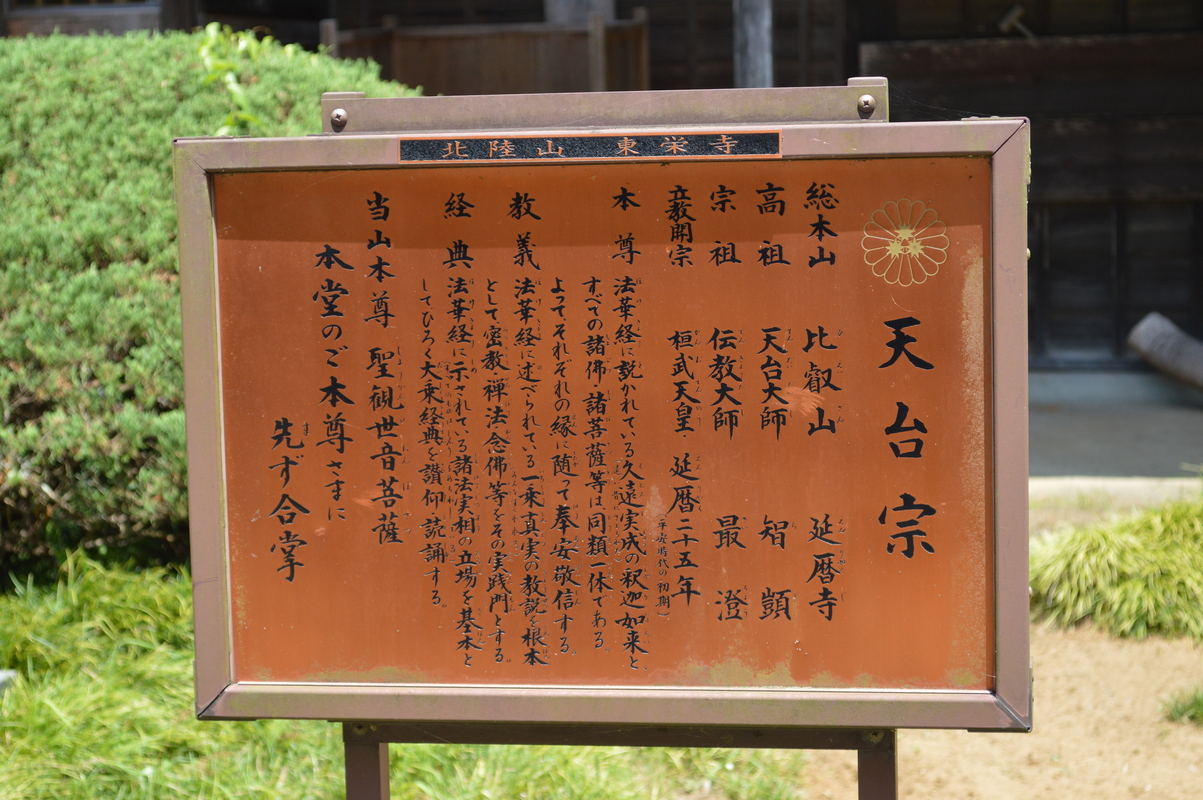 北陸山 東栄寺
天台宗
総本山 比叡山 延暦寺
高祖 天台大師 智顗
宗祖 伝教大師 最澄
立教開宗 桓武天皇 延暦二十五年
(平安時代の初期)
本尊 法華経に説かれている久遠実成の釈迦如来と、
すべての諸佛・諸菩薩等は同類一体である
よってそれぞれの縁に随って奉安敬信する。
教義 法華経に述べられている一乗真実の教説を根本
として密教禅法念佛等をその実践門とする。
経典 法華経に示されている諸法実相の立場を基本と
してひろく大乗経典を讃仰・読誦する。
当山本尊 聖観世音菩薩
本堂のご本尊さまに
先ず合掌